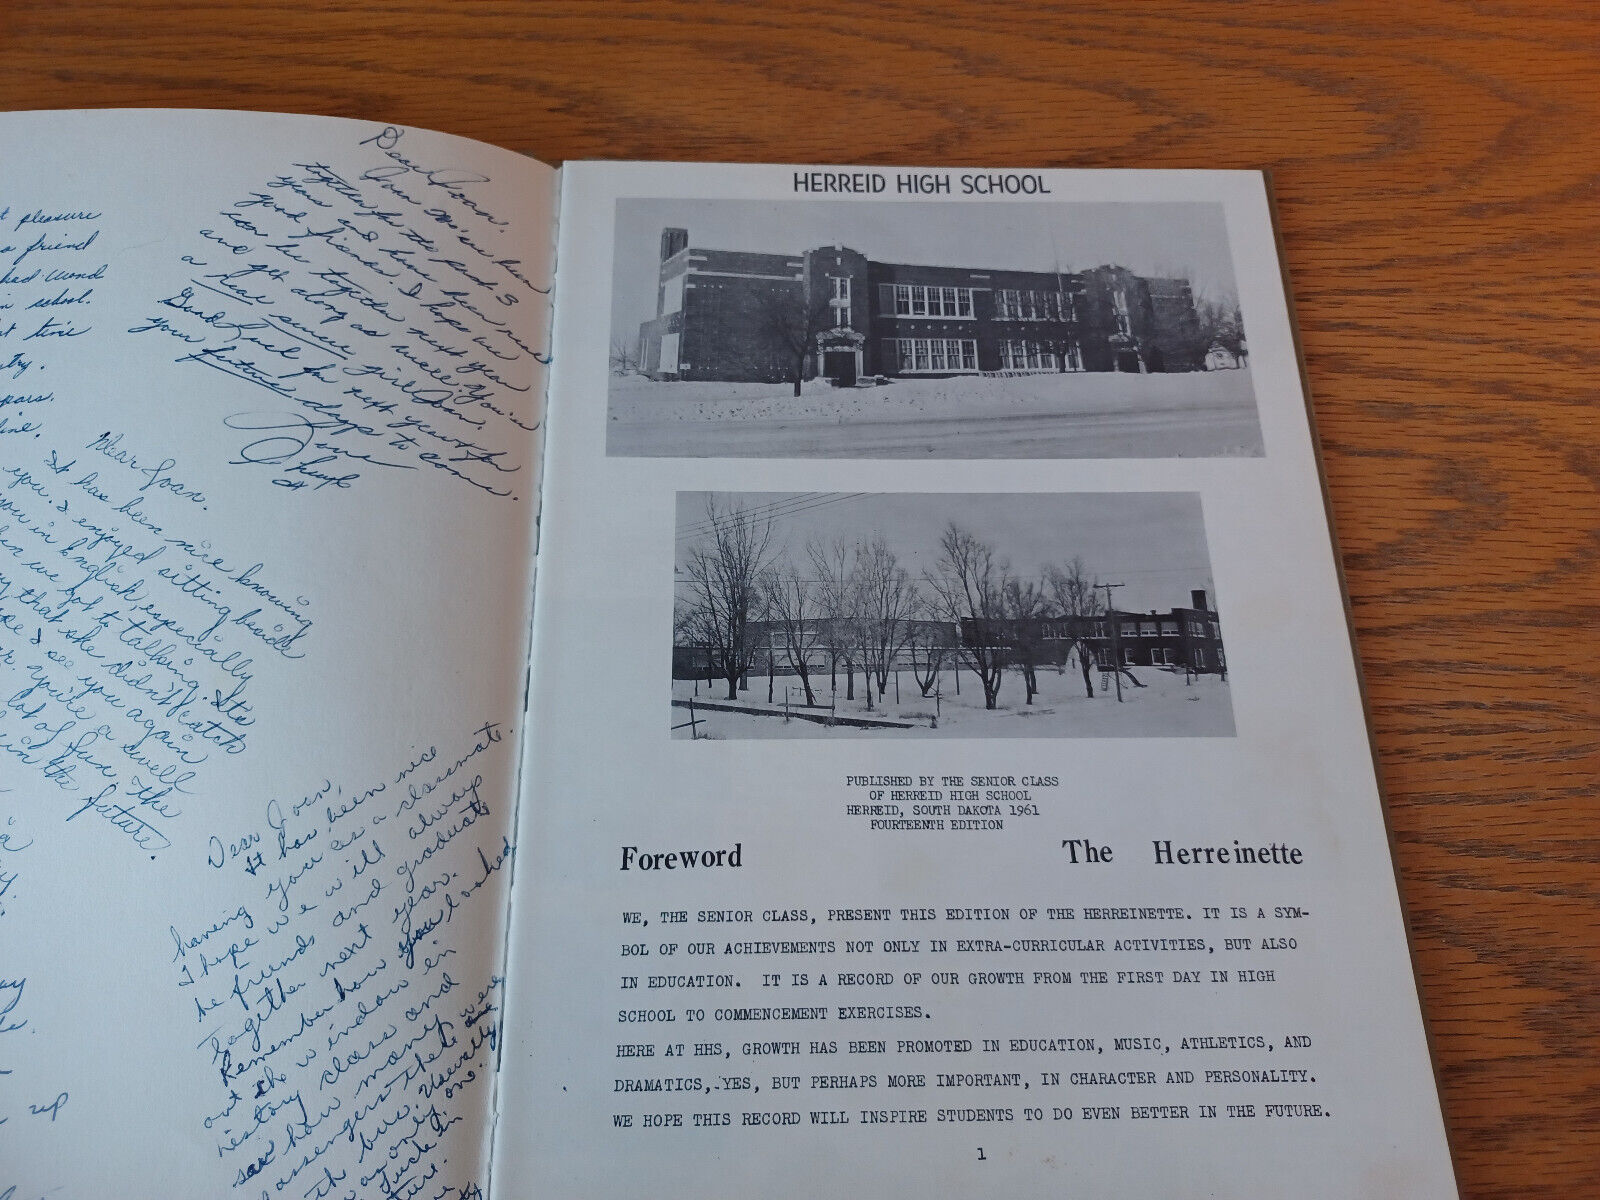 t pleasure
a friend
in school.
t time
try.
Dear Joan,
together for the past 3
years and have been real
good friends. I hope we
can be together next year
and get along as well. You're
a real swell girl Joan.
Good luck for next year & for
your future days to come.
Love
Dear Joan.
It has been nice knowing
you. I enjoyed sitting beside
you in English, especially
when we got to talking.
that she didn't catch
I see you again
you're a swell
lot of fun, the
in the future.
up
Dear Joan,
It has been nice
having you as a classmate.
I hope we will always
be friends and graduate
together next year.
Remember how you looked
out the window in
history class and
saw how many
passengers there were
HERREID HIGH SCHOOL
PUBLISHED BY THE SENIOR CLASS
OF HERREID HIGH SCHOOL
HERREID, SOUTH DAKOTA 1961
FOURTEENTH EDITION
Foreword The Herreinette
WE, THE SENIOR CLASS, PRESENT THIS EDITION OF THE HERREINETTE. IT IS A SYM-
BOL OF OUR ACHIEVEMENTS NOT ONLY IN EXTRA-CURRICULAR ACTIVITIES, BUT ALSO
IN EDUCATION. IT IS A RECORD OF OUR GROWTH FROM THE FIRST DAY IN HIGH
SCHOOL TO COMMENCEMENT EXERCISES.
HERE AT HHS, GROWTH HAS BEEN PROMOTED IN EDUCATION, MUSIC, ATHLETICS, AND
DRAMATICS, YES, BUT PERHAPS MORE IMPORTANT, IN CHARACTER AND PERSONALITY.
WE HOPE THIS RECORD WILL INSPIRE STUDENTS TO DO EVEN BETTER IN THE FUTURE.
1